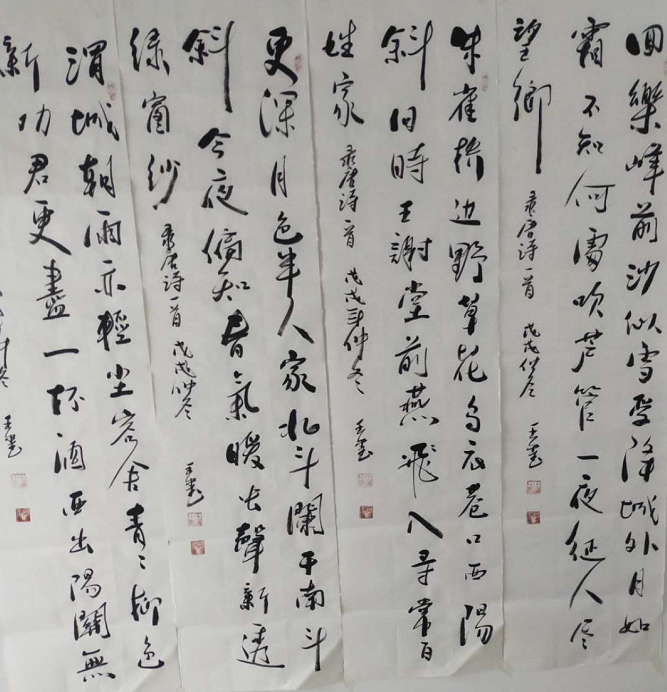 回樂峰前沙似雪受降城外月如
霜不知何處吹芦管一夜征人尽
望鄉 录唐诗一首 戊戌仲冬
朱雀桥边野草花乌衣巷口西陽
斜旧時王謝堂前燕飛入寻常百
姓家 录唐诗一首 戊戌年仲冬
更深月色半人家北斗闌干南斗
斜今夜偏知春氣暖虫聲新透
绿窗纱 录唐诗一首 戊戌仲冬
渭城朝雨亦輕尘客舍青々柳色
新功君更盡一杯酒西出陽關無